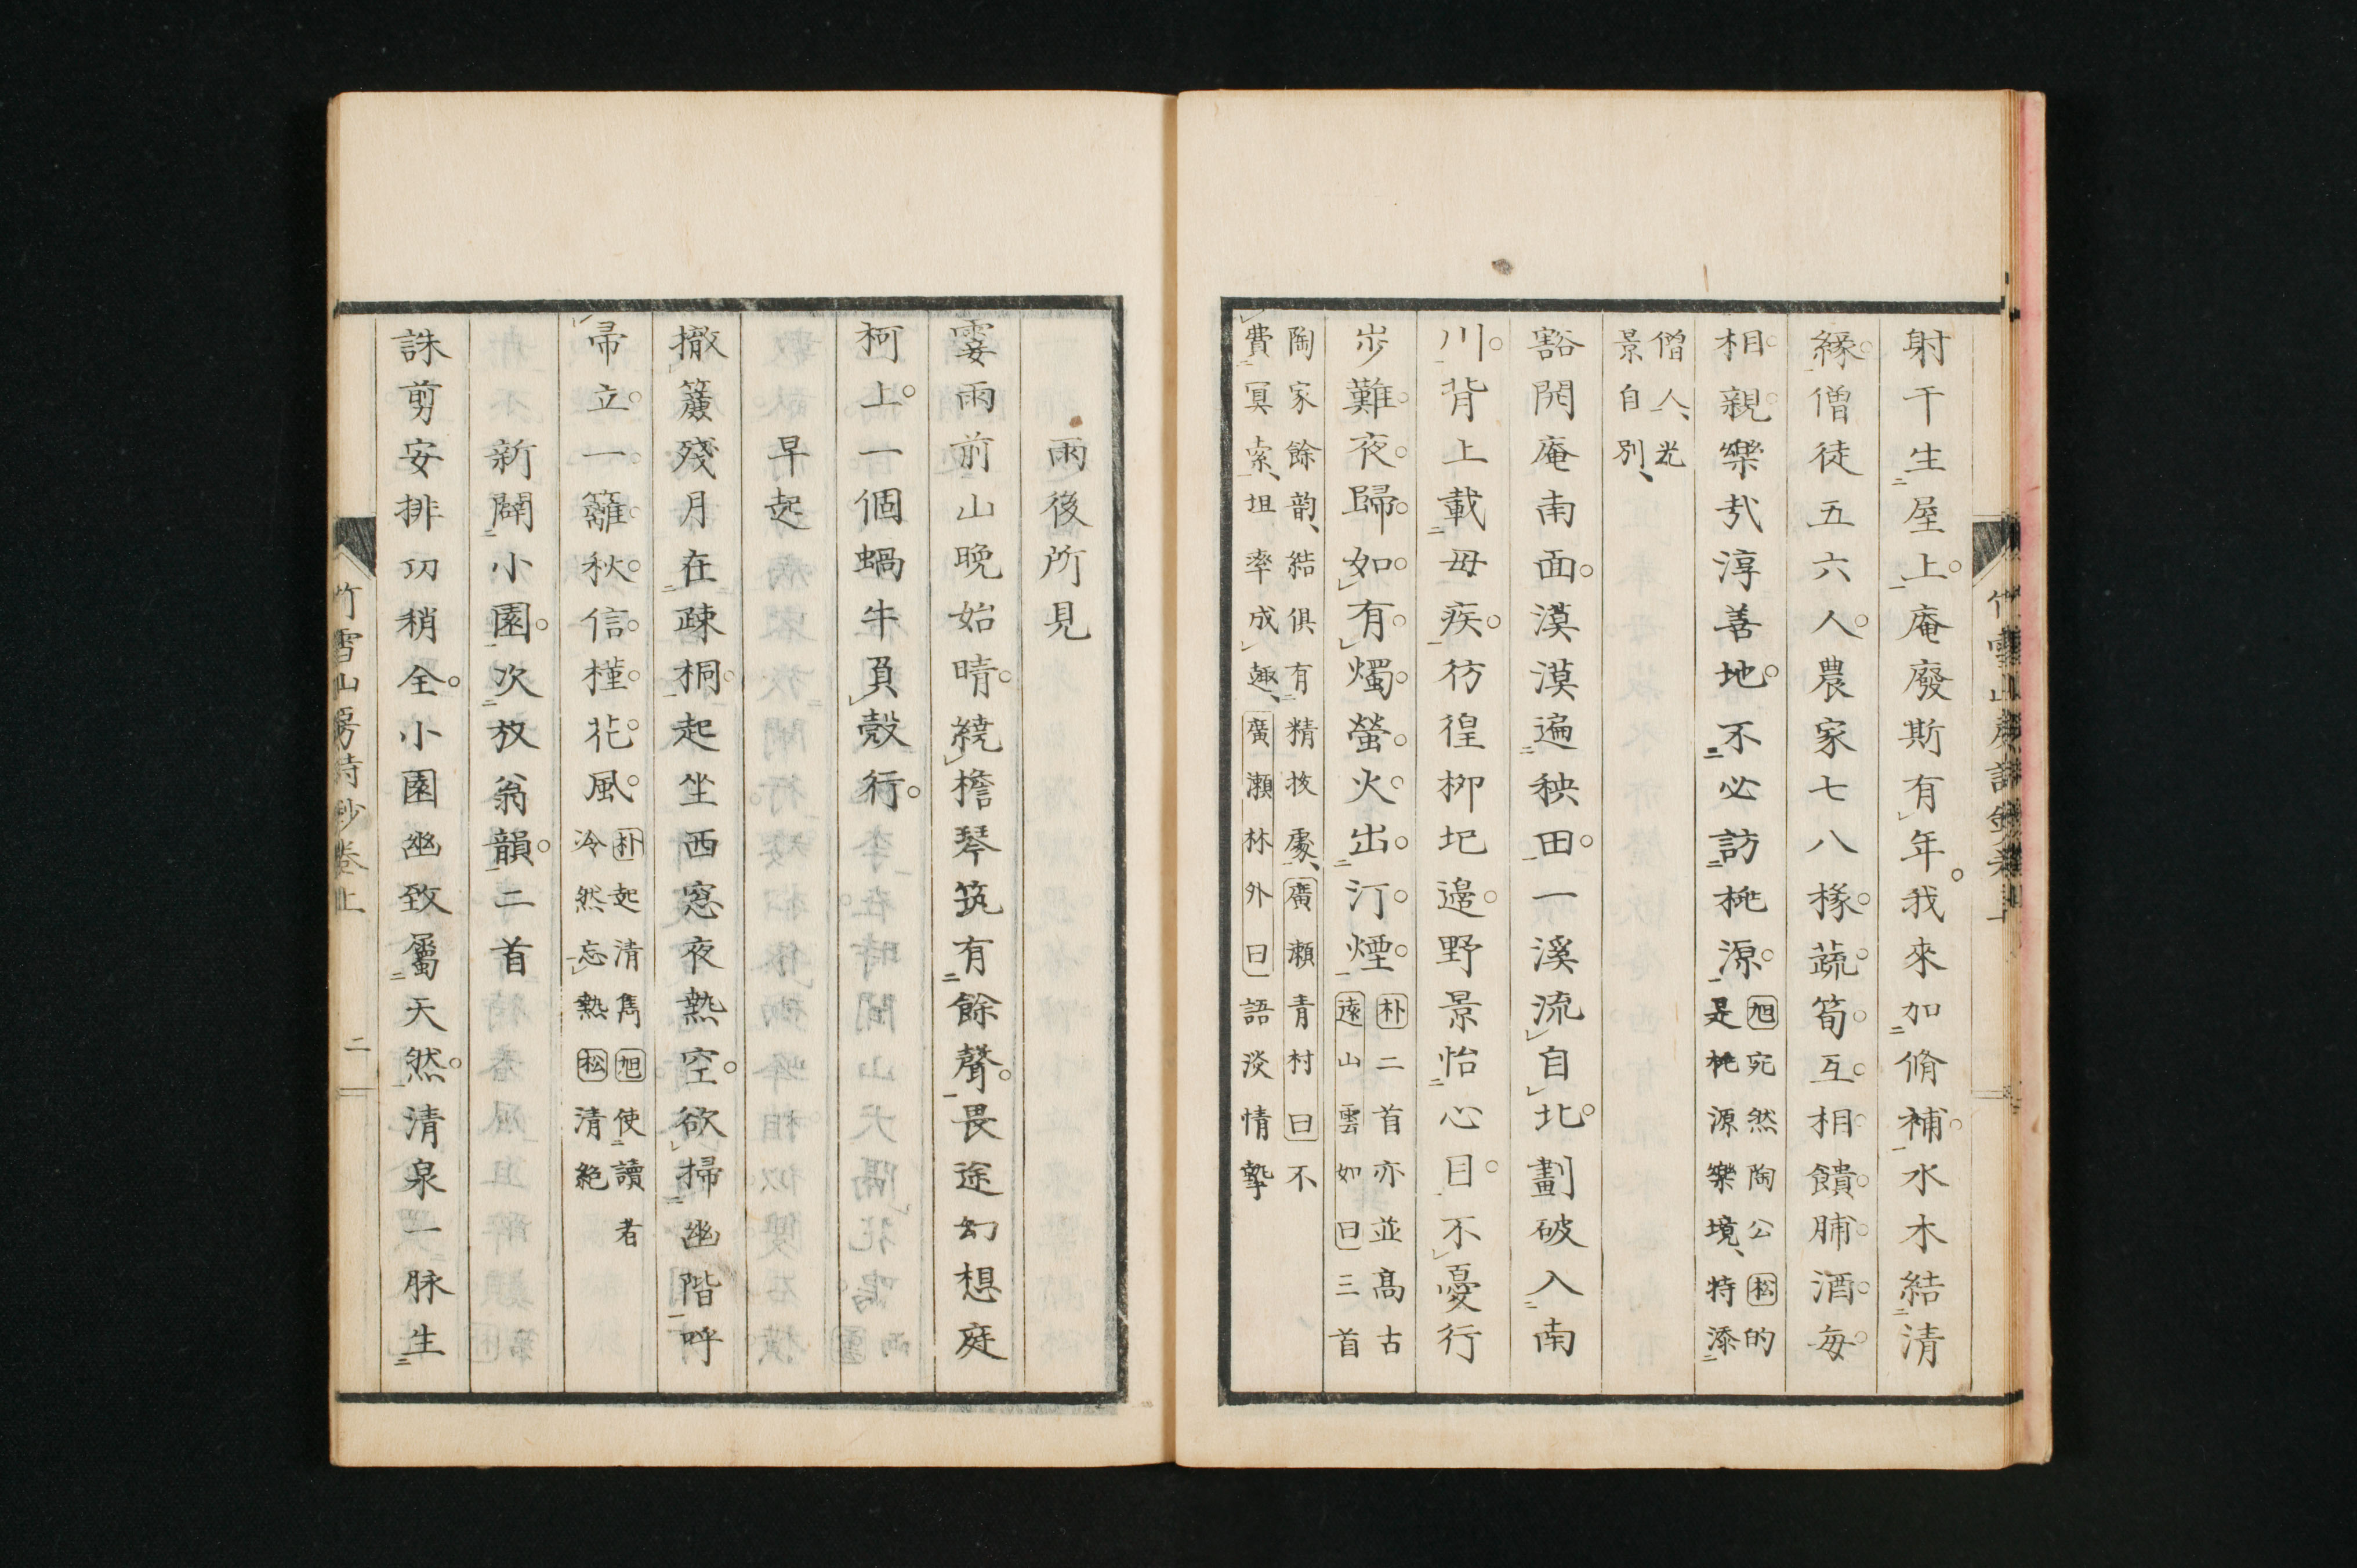 射干生屋上。庵廢斯有年。我來加脩補。水木結清
緣。僧徒五六人。農家七八椽。蔬筍互相饋。脯酒每
相親。樂哉淳善地。不必訪桃源。
旭宛然陶公松的
是桃源樂境、特添
僧人、光
景自別、
豁開庵南面。漠漠遍秧田。一溪流自北。劃破入南
川。背上載母疾。彷徨柳圯邊。野景怡心目。不憂行
步難。夜歸如有燭。螢火出汀煙。
朴二首亦並高古
遠山雲如曰三首
陶家餘韵、結俱有精核處、廣瀬青村曰不
費冥索、坦率成趣、廣瀬林外曰語淡情摯
雨後所見
霎雨前山晚始晴。繞檐琴筑有餘聲。畏途幻想庭
柯上。一個蝸牛負殼行。
早起
撤簾殘月在疎桐。起坐西窓夜熱空。欲掃幽階呼
帚立。一籬秋信槿花風。
朴起清雋旭使讀者
冷然忘熱松清絶
新闢小園。次放翁韻。二首
誅剪安排功稍全。小園幽致屬天然。清泉一脉生
竹雪山房詩鈔卷上
二